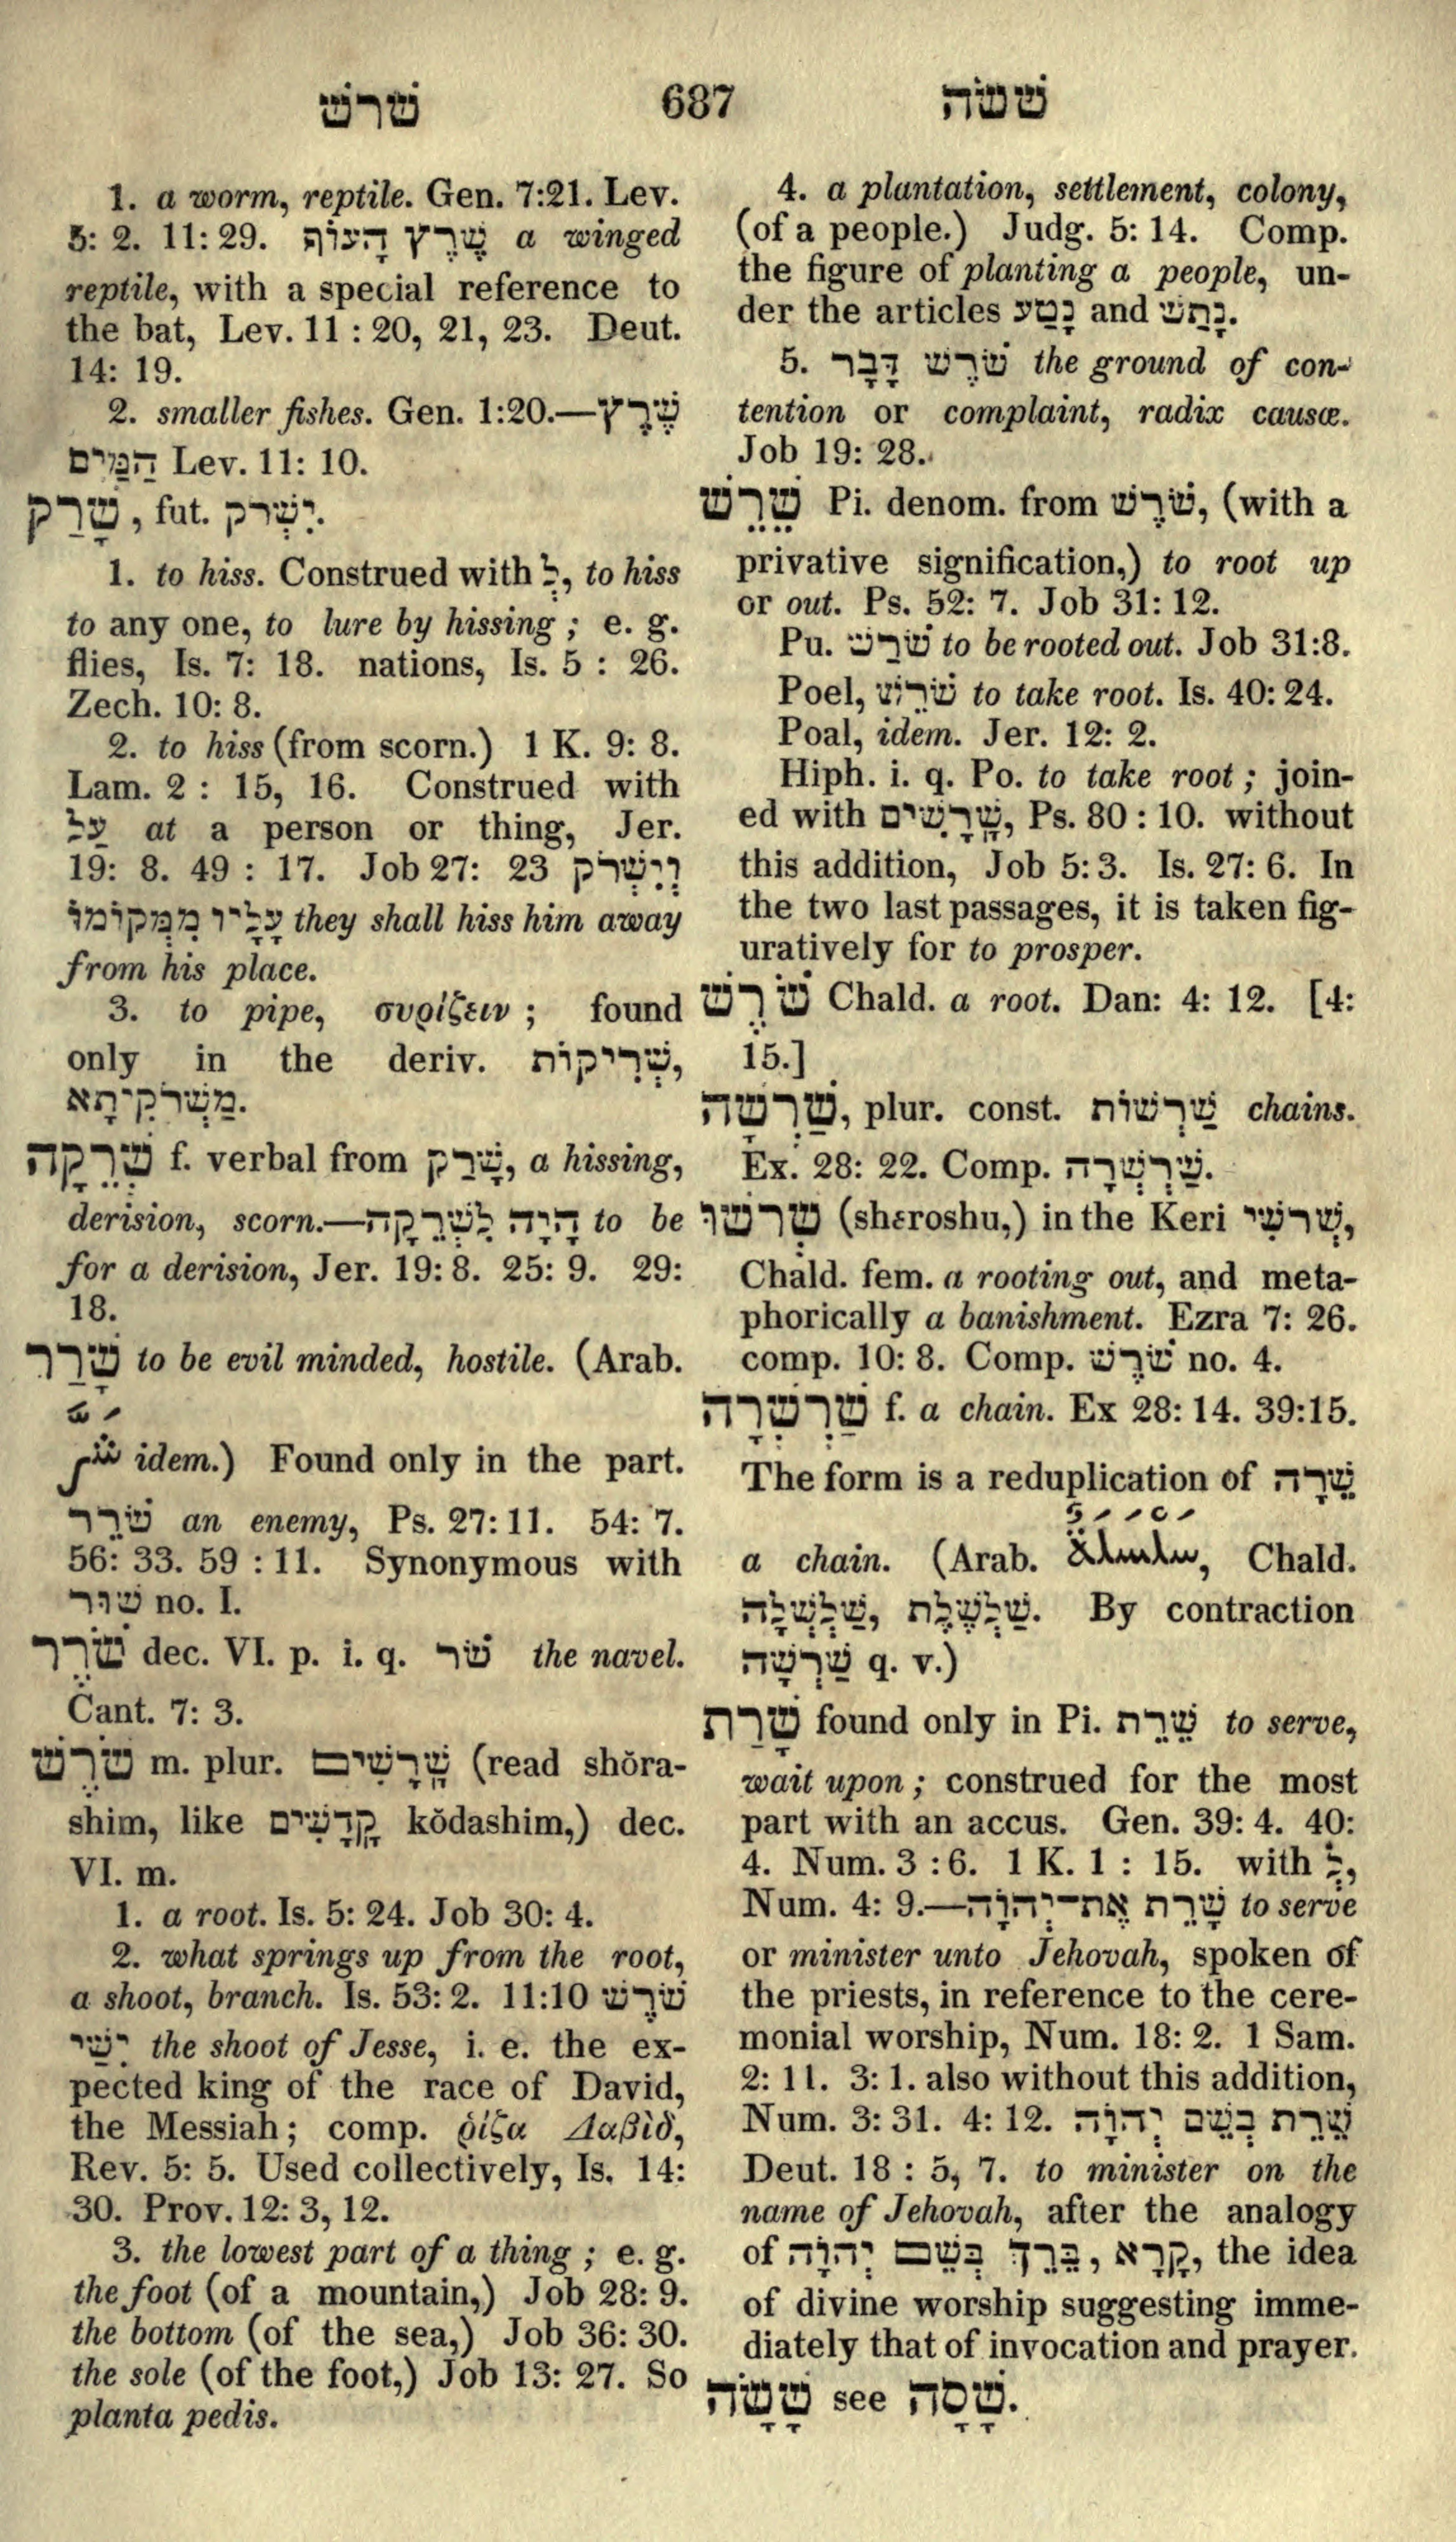 שׁרשׁ 687 שׁשׂה
1. a worm, reptile. Gen. 7:21. Lev.
5: 2. 11: 29. שֶׁרֶץ הָעוֹף a winged
reptile, with a special reference to
the bat, Lev. 11 : 20, 21, 23. Deut.
14: 19.
2. smaller fishes. Gen. 1:20.—שֶׁרֶץ
הַמַּיִם Lev. 11: 10.
שָׁרַק, fut. יִשְׁרֹק.
1. to hiss. Construed with לְ, to hiss
to any one, to lure by hissing ; e. g.
flies, Is. 7: 18. nations, Is. 5 : 26.
Zech. 10: 8.
2. to hiss (from scorn.) 1 K. 9: 8.
Lam. 2 : 15, 16. Construed with
עַל at a person or thing, Jer.
19: 8. 49 : 17. Job 27: 23 וְיִשְׁרֹק
עָלָיו מִמְּקוֹמוֹ they shall hiss him away
from his place.
3. to pipe, συρίζειν ; found
only in the deriv. שְׁרִיקוֹת,
מַשְׁרֹקִיתָא.
שְׁרֵקָה f. verbal from שָׁרַק, a hissing,
derision, scorn.—הָיָה לִשְׁרֵקָה to be
for a derision, Jer. 19: 8. 25: 9. 29:
18.
שָׁרַר to be evil minded, hostile. (Arab.
شَرَّ idem.) Found only in the part.
שֹׁרֵר an enemy, Ps. 27: 11. 54: 7.
56: 33. 59 : 11. Synonymous with
שׁוּר no. I.
שֹׁרֶר dec. VI. p. i. q. שֹׁר the navel.
Cant. 7: 3.
שֹׁרֶשׁ m. plur. שָׁרָשִׁים (read shŏra-
shim, like קָדָשִׁים kŏdashim,) dec.
VI. m.
1. a root. Is. 5: 24. Job 30: 4.
2. what springs up from the root,
a shoot, branch. Is. 53: 2. 11:10 שֹׁרֶשׁ
יִשַׁי the shoot of Jesse, i. e. the ex-
pected king of the race of David,
the Messiah; comp. ῥίζα Δαβὶδ,
Rev. 5: 5. Used collectively, Is. 14:
30. Prov. 12: 3, 12.
3. the lowest part of a thing ; e. g.
the foot (of a mountain,) Job 28: 9.
the bottom (of the sea,) Job 36: 30.
the sole (of the foot,) Job 13: 27. So
planta pedis.
4. a plantation, settlement, colony,
(of a people.) Judg. 5: 14. Comp.
the figure of planting a people, un-
der the articles נָטַע and נָתַשׁ.
5. שֹׁרֶשׁ דָּבָר the ground of con-
tention or complaint, radix causæ.
Job 19: 28.
שֵׁרֵשׁ Pi. denom. from שֹׁרֶשׁ, (with a
privative signification,) to root up
or out. Ps. 52: 7. Job 31: 12.
Pu. שֹׁרַשׁ to be rooted out. Job 31:8.
Poel, שֹׁרֵשׁ to take root. Is. 40: 24.
Poal, idem. Jer. 12: 2.
Hiph. i. q. Po. to take root ; join-
ed with שָׁרָשִׁים, Ps. 80 : 10. without
this addition, Job 5: 3. Is. 27: 6. In
the two last passages, it is taken fig-
uratively for to prosper.
שֹׁרֶשׁ Chald. a root. Dan: 4: 12. [4:
15.]
שַׁרְשָׁה, plur. const. שַׁרְשׁוֹת chains.
Ex. 28: 22. Comp. שַׁרְשְׁרָה.
שְׁרֹשׁוּ (sheroshu,) in the Keri שְׁרֹשִׁי,
Chald. fem. a rooting out, and meta-
phorically a banishment. Ezra 7: 26.
comp. 10: 8. Comp. שֹׁרֶשׁ no. 4.
שַׁרְשְׁרָה f. a chain. Ex 28: 14. 39:15.
The form is a reduplication of שֵׁרָה
a chain. (Arab. سَلْسَلَةٌ, Chald.
שַׁלְשֶׁלֶת, שַׁלְשְׁלָה. By contraction
שַׁרְשָׁה q. v.)
שָׁרַת found only in Pi. שֵׁרֵת to serve,
wait upon ; construed for the most
part with an accus. Gen. 39: 4. 40:
4. Num. 3 : 6. 1 K. 1 : 15. with לְ,
Num. 4: 9.—שָׁרֵת אֶת־יְהוָֹה to serve
or minister unto Jehovah, spoken of
the priests, in reference to the cere-
monial worship, Num. 18: 2. 1 Sam.
2: 11. 3: 1. also without this addition,
Num. 3: 31. 4: 12. שֵׁרֵת בְּשֵׁם יְהוָֹה
Deut. 18 : 5, 7. to minister on the
name of Jehovah, after the analogy
of קָרָא, בֵּרֵךְ בְּשֵׁם יְהוָֹה, the idea
of divine worship suggesting imme-
diately that of invocation and prayer.
שָׁשָׂה see שָׁסָה.